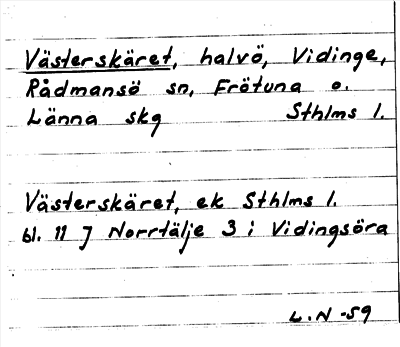 Västerskäret, halvö, Vidinge,
Rådmansö sn, Frötuna o.
Länna skg Sthlms l.
Västerskäret, ek Sthlms l.
bl. 11 J Norrtälje 3 i Vidingsöra
L.N -59